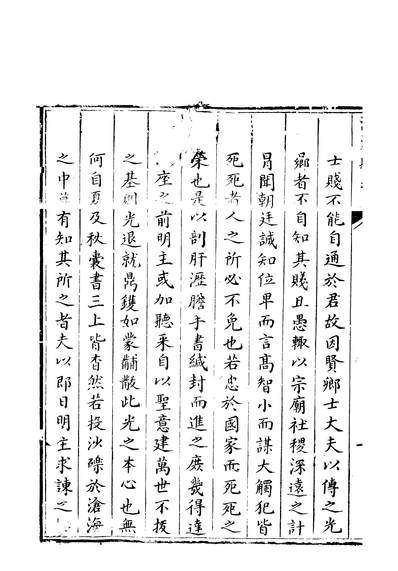 士賤不能自通於君故因賢鄉士大夫以傳之光
鄉者不自知其賤且愚輒以宗廟社稷深遠之計
冒聞朝廷誠知位卑而言髙智小而謀大觸犯皆
死死者人之所必不免也若忠於國家而死死之
榮也是以剖肝瀝膽手書緘封而進之庶幾得達
座之前明主或加聽采自以聖意建萬世不拔
之基則光退就鼎鑊如蒙黼黻此光之本心也無
何自夏及秋囊書三上皆杳然若投沙礫於滄海
之中有知其所之者夫以即日明主求諫之